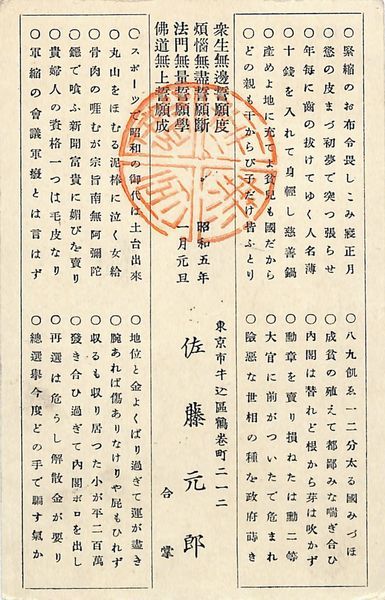 ○緊縮のお布令畏しこみ寢正月
○慾の皮まづ初夢で突つ張らせ
○年毎に齒の拔けてゆく人名薄
○十錢を入れて身輕し慈善鍋
○產めよ地に充てよ貧兒も國だから
○どの親も干からび子だけ皆ふとり
○八九飢ゑ一二分太る國みづほ
○成貧の殖えて都鄙みな喘ぎ合ひ
○内閣は替れど根から芽は吹かず
○勳章を賣り損ねたは勳二等
○大官に前がついたで危まれ
○險惡な世相の種を政府蒔き
衆生無邊誓願度
煩惱無盡誓願斷
法門無量誓願學
佛道無上誓願成
昭和五年
一月元旦
東京市牛込區鶴巻町二一二
佐藤元郎
合掌
○スポーツで昭和の御代は土台出來
○丸山をほむる泥棒に泣く女給
○骨肉の啀むが宗旨南無阿彌陀
で喰ふ新聞富貴に媚びを賣り
○貴婦人の資格一つは毛皮なり
○軍縮の會議軍 とは言はず
○地位と金よくばり過ぎて運が盡き
○腕あれば傷ありなけりや屁もひれず
○收るも收り居つた小が平二百萬
○發き合ひ過ぎて内閣ボロを出し
○再選は危うし解散金が要り
○總選擧今度どの手で騙す氣か